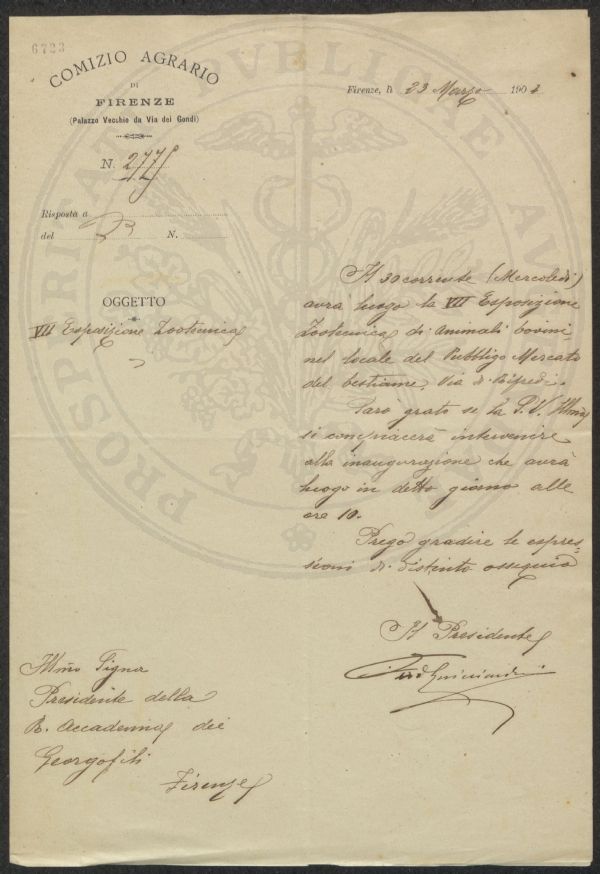 6723
COMIZIO AGRARIO
DI
FIRENZE
(Palazzo Vecchio da Via dei Gondi)
N. 2775
Risposta a
del N.
OGGETTO
VII Esposizione Zootecnica
Firenze, li 23 Marzo 190
Il 30 corrente (Mercoledì)
avrà luogo la VII Esposizione
Zootecnica di animali bovini
nel locale del Pubblico Mercato
del bestiame, Via di Rifredi.
Sarò grato se la S. V. Illma
si compiacerà intervenire
alla inaugurazione che avrà
luogo in detto giorno alle
ore 10.
Prego gradire le espres-
sioni di distinto ossequio
Il Presidente
Guicciardini
Illmo Signor
Presidente della
R. Accademia dei
Georgofili
Firenze
PROSPERITATI PVBLICAE AV